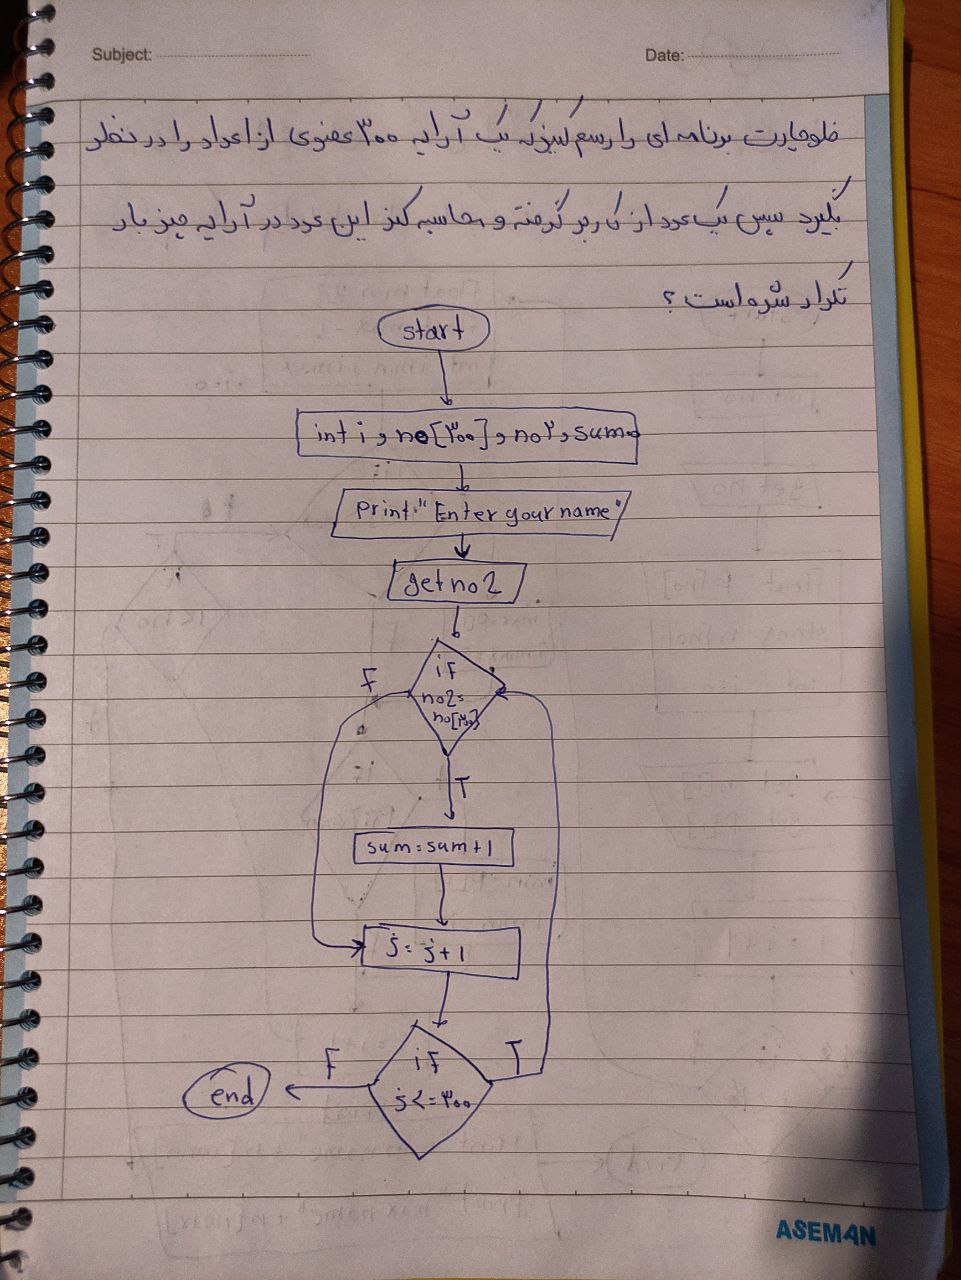 Subject:
Date:
فلوچارت برنامه ای را رسم کنیز که یک آرایه ۳۰۰ عضوی از اعداد را در نظر
بگیرد سپس یک عدد از کاربر گرفته و محاسبه کنز این عدد در آرایه چیز بار
تکرار شده است؟
start
int i, no[۳۰۰], no۲, sum=
print "Enter your name"
get no2
if
no2=
no[۳۰۰]
F
T
sum = sum+1
j = j+1
if
j<=۳۰۰
F
T
end
ASEMAN